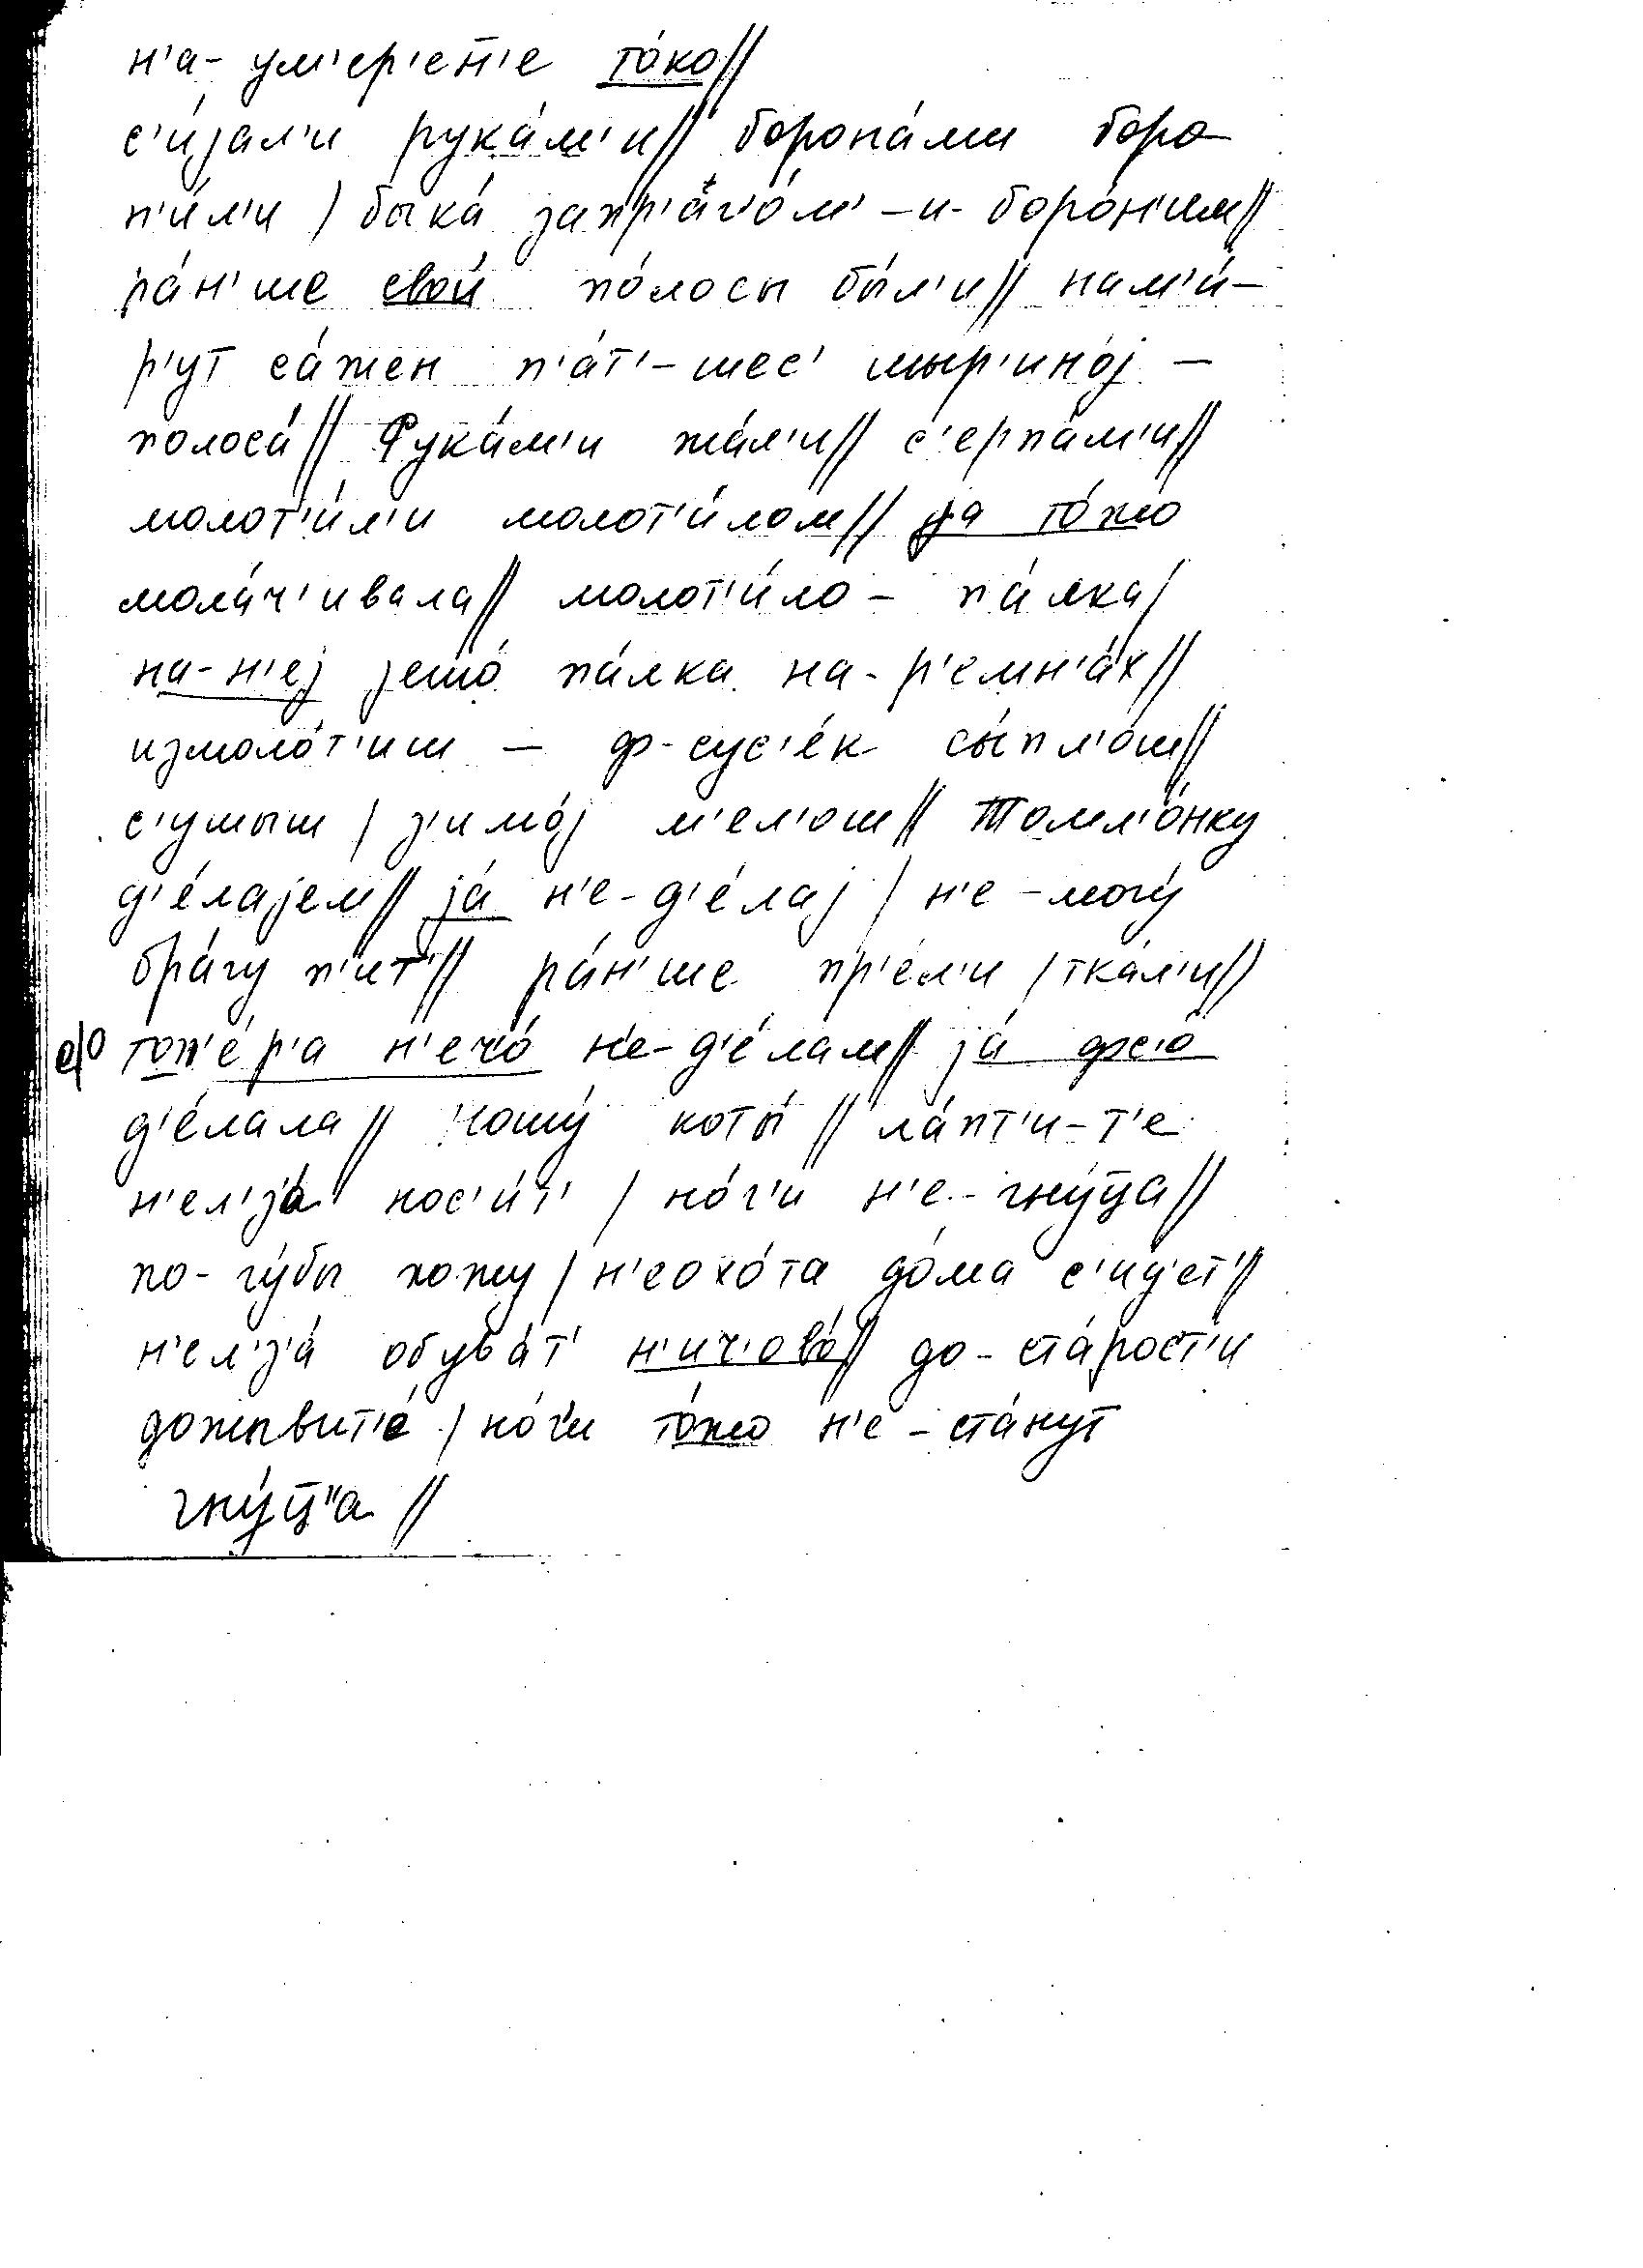 н'а- ум'ер'ет'е то́ко//
с'и́јал'и рука́м'и// борона́ми боро
н'и́л'и / быка́ запр'аг'о́м' –и- боро́н'им//
ра́н'ше свои́ по́лосы бы́л'и// нам'и́–
р'ут са́жен п'а́т'–шес' мыр'ино́ј –
полоса́// Рука́м'и жа́л'и// с'ерпа́м'и//
молот'и́л'и молот'и́лом// ја то́жо
мола́ч'ивала// молот'и́ло – па́лка/
на-н'еј јешо́ па́лка на-р'емн'а́х//
измоло́т'иш – ф-сус'е́к сы́пл'ош//
с'ушыш / з'имо́ј м'ел'ош// Томл'о́нку
д'е́лајем// ја́ н'е-д'е́лај / н'е-могу́
бра́гу п'ит'// ра́н'ше пр'е́л'и / тка́л'и//
е/о топ'е́р'а н'ечо́ н'е-д'е́лам// ја́ фс'о́
д'е́лала// Ношу́ коты́ // ла́пт'и-т'е
н'ел'з'а́ нос'и́т' / но́г'и н'е-гну́ца//
по-гу́бы хожу / н'еохо́та до́ма с'ид'ет'//
н'ел'з'а́ обува́т' н'ич'ово́// до-ста́рост'и
дожывит'е́ / но́г'и то́жо н'е-ста́нут
гну́ц"а //